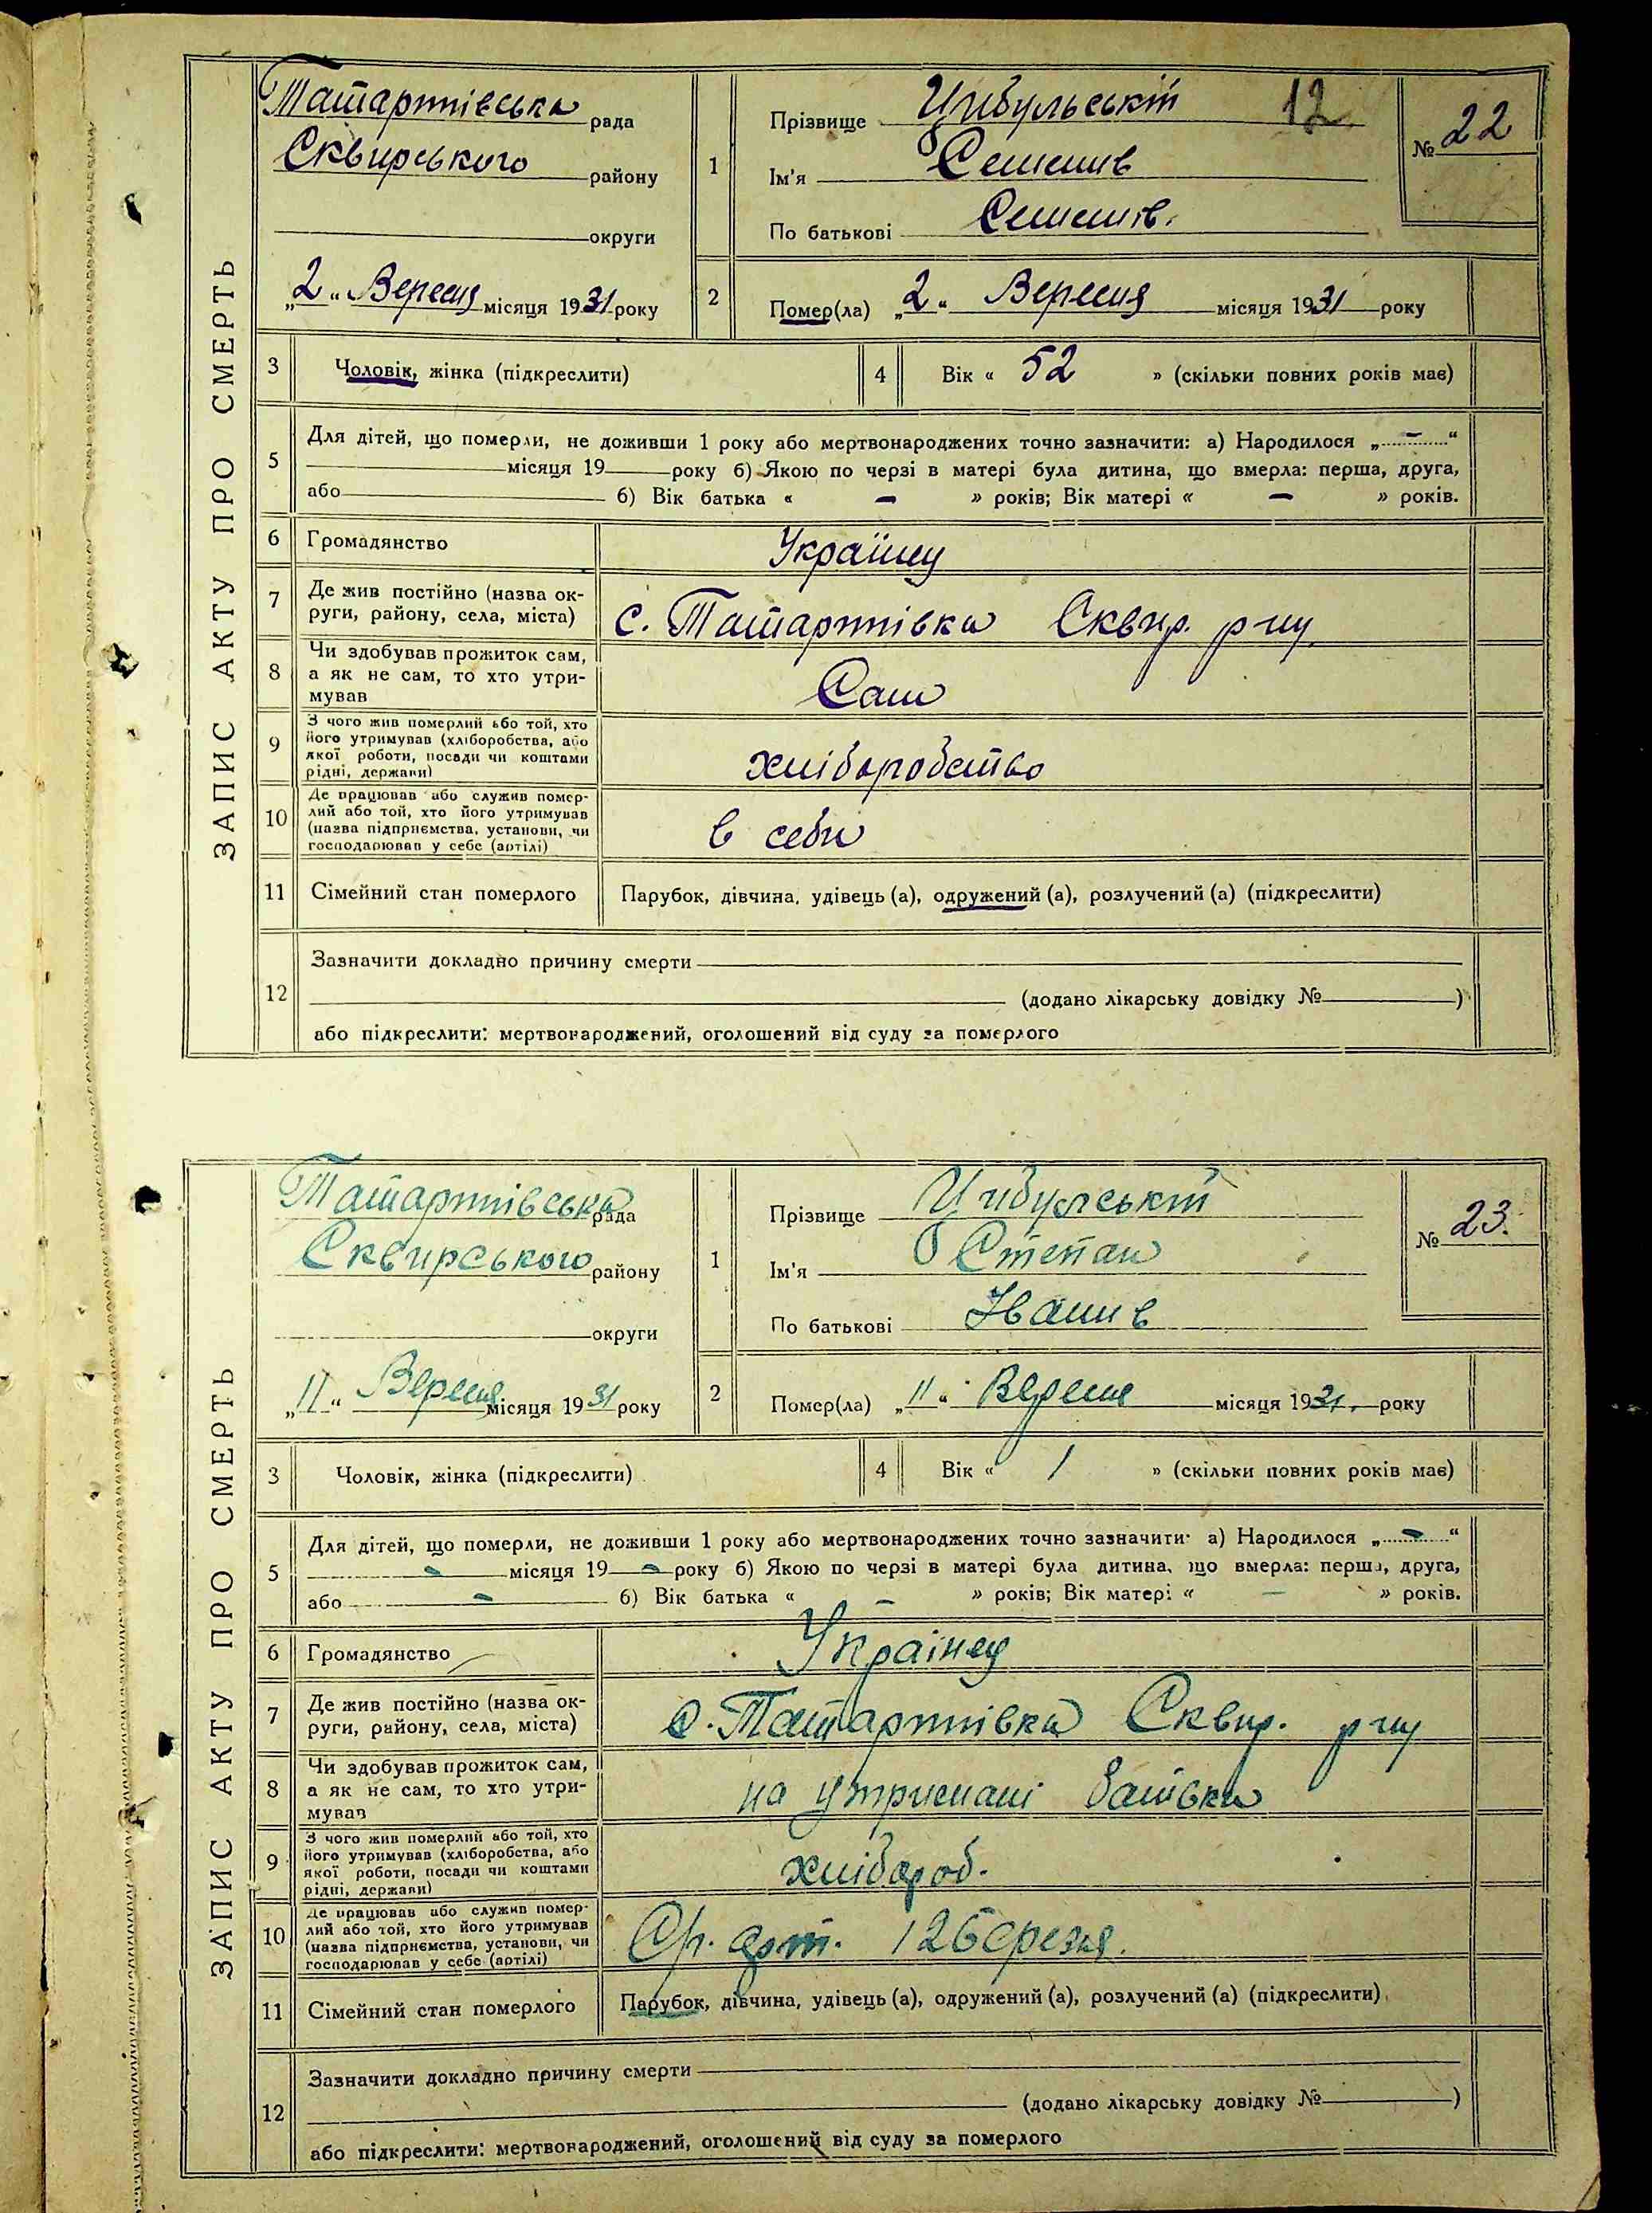 ЗАПИС АКТУ ПРО СМЕРТЬ
Татартпівська рада
Сквирського району
округи
„2“ Вересня місяця 1931 року
1
Прізвище Цибульській 12
Ім'я Семенив
По батькові Семенів.
№ 22
2
Помер(ла) „2“ Вересня місяця 1931 року
3 Чоловік, жінка (підкреслити)
4 Вік « 52 » (скільки повних років має)
5 Для дітей, що померли, не доживши 1 року або мертвонароджених точно зазначити: а) Народилося „–“
місяця 19 року б) Якою по черзі в матері була дитина, що вмерла: перша, друга,
або б) Вік батька « – » років; Вік матері « – » років.
6 Громадянство Українец
7 Де жив постійно (назва ок-
руги, району, села, міста) с. Сквир. р-ну
8 Чи здобував прожиток сам,
а як не сам, то хто утри-
мував Сам
9 З чого жив померлий або той, хто
його утримував (хліборобства, або
якої роботи, посади чи коштами
рідні, держави) хліборобство
10 Де працював або служив помер-
лий або той, хто його утримував
(назва підприємства, установи, чи
господарював у себе (артілі) в себи
11 Сімейний стан померлого Парубок, дівчина, удівець (а), одружений (а), розлучений (а) (підкреслити)
12 Зазначити докладно причину смерти
(додано лікарську довідку № )
або підкреслити: мертвонароджений, оголошений від суду за померлого
ЗАПИС АКТУ ПРО СМЕРТЬ
рада
Сквирського району
округи
„11“ Вересня місяця 1931 року
1
Прізвище Цибульській
Ім'я Степан
По батькові Іванив
№ 23.
2
Помер(ла) „11“ Вересня місяця 1931. року
3 Чоловік, жінка (підкреслити)
4 Вік « 1 » (скільки повних років має)
5 Для дітей, що померли, не доживши 1 року або мертвонароджених точно зазначити: а) Народилося „–“
– місяця 19 – року б) Якою по черзі в матері була дитина, що вмерла: перша, друга,
або – б) Вік батька « – » років; Вік матері « – » років.
6 Громадянство Українец
7 Де жив постійно (назва ок-
руги, району, села, міста) с. Сквир. р-ну
8 Чи здобував прожиток сам,
а як не сам, то хто утри-
мував на утримані батька
9 З чого жив померлий або той, хто
його утримував (хліборобства, або
якої роботи, посади чи коштами
рідні, держави) хлібороб.
10 Де працював або служив помер-
лий або той, хто його утримував
(назва підприємства, установи, чи
господарював у себе (артілі) арт. 12 березня.
11 Сімейний стан померлого Парубок, дівчина, удівець (а), одружений (а), розлучений (а) (підкреслити)
12 Зазначити докладно причину смерти
(додано лікарську довідку № )
або підкреслити: мертвонароджений, оголошений від суду за померлого